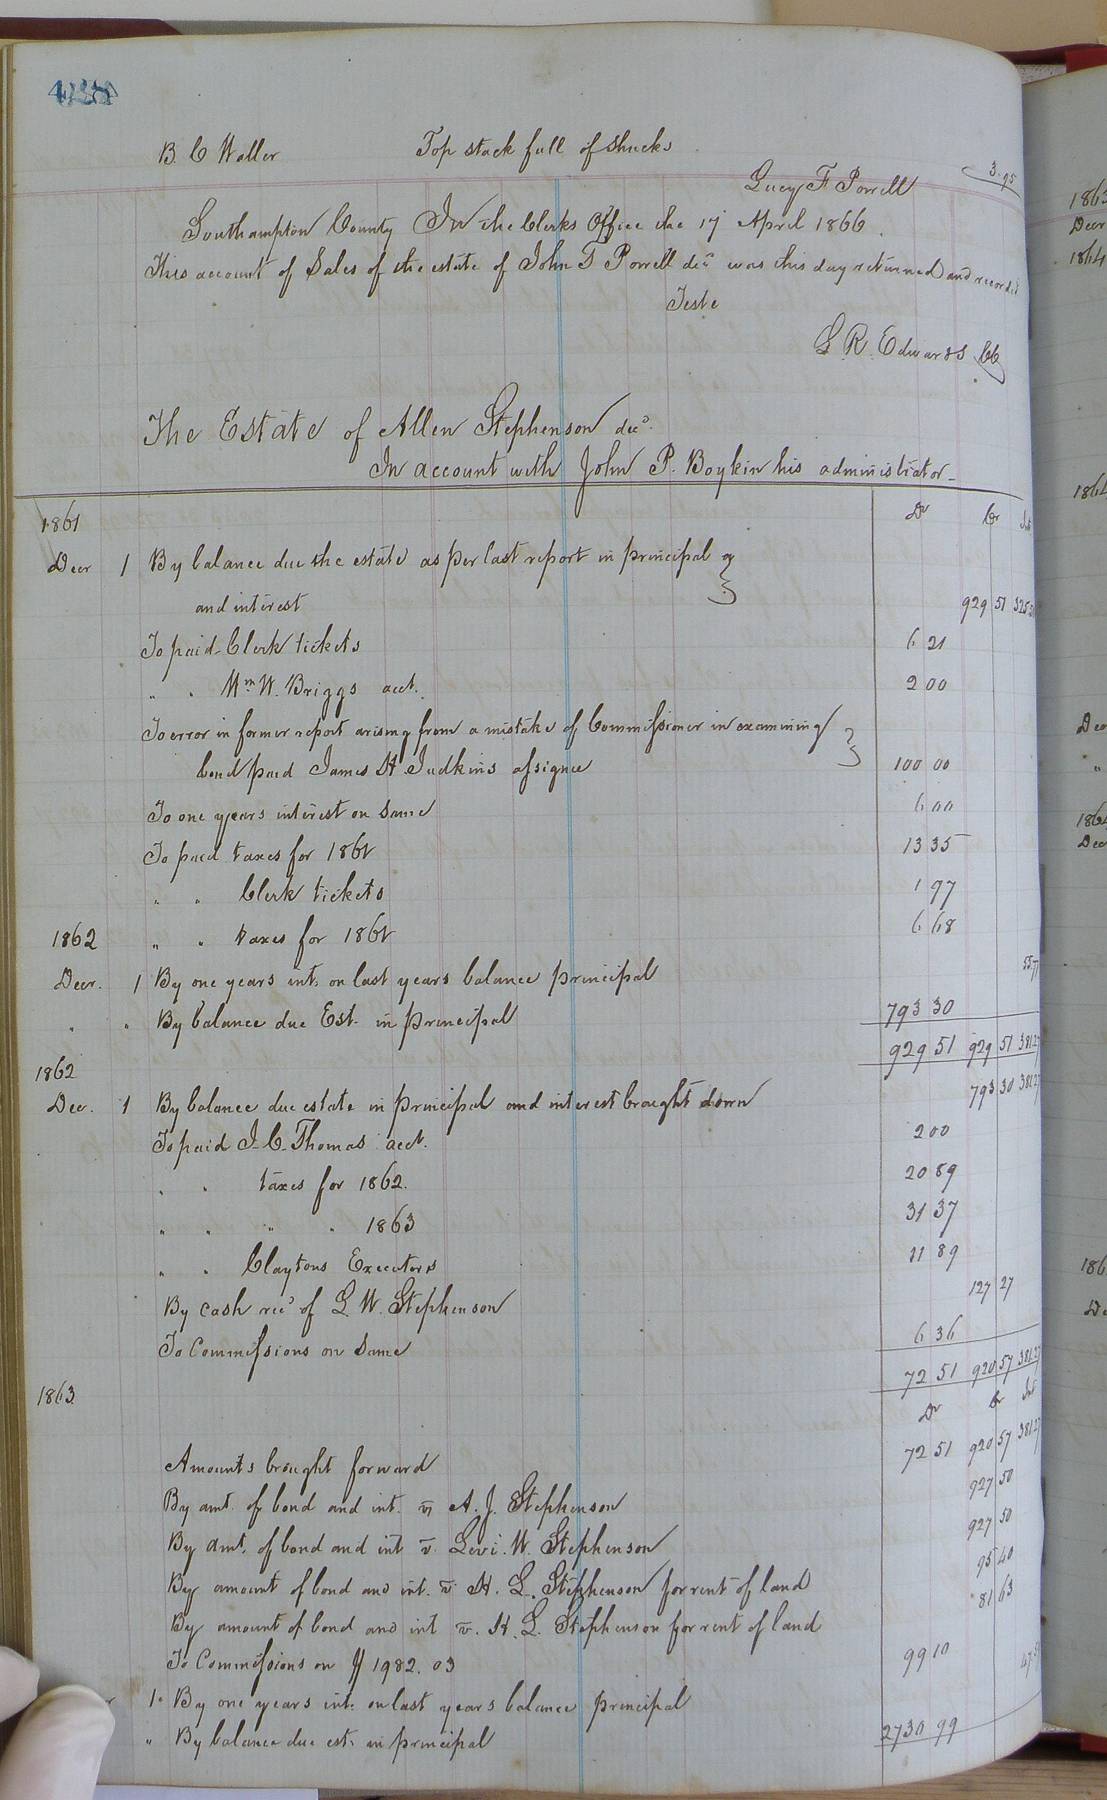 B. C Waller Top stack full of Shucks 3.95
Lucy F Porrell
Southampton County In the Clerks Office the 17 April 1866
This account of Sales of the estate of John T Porrell decd was this day returned and recorded
Teste
L. R. Edwards CC
The Estate of Allen Stephenson decd.
In account with John P. Boykin his administrator
1861 Dr Cr Int
Decr 1 By balance due the estate as per last report in principal &
and interest 929 51 325.50
To paid Clerk tickets 6 21
" " Wm W. Briggs acct. 2 00
To error in former report arising from a mistake of Commissioner in examining
bond paid James H Judkins assignee 100 00
To one years interest on Same 6 00
To paid taxes for 1861 13 35
" " Clerk tickets 1 97
1862 " " taxes for 1861 6 68
Decr. 1 By one years int. on last years balance principal 55.77
" " By balance due Est. in principal 793 30
929 51 929 51 381.27
1862
Dec. 1 By balance due estate in principal and interest brought down 793 30 381.27
To paid J. C. Thomas acct. 2 00
" " taxes for 1862. 20 89
" " " " 1863 31 37
" " Claytons Executors 11 89
By cash recd of L. W. Stephenson 127 27
To Commissions on Same 6 36
72 51 920 57 381.27
1863 Dr Cr Int
Amounts brought forward 72 51 920 57 381.27
By amt. of bond and int. v A. J. Stephenson 927 50
By amt. of bond and int v. Levi. W. Stephenson 927 50
By amount of bond and int. v. H. L. Stephenson for rent of land 95 40
By amount of bond and int v. H. L. Stephenson for rent of land 81 63
To Commissions on $ 1982.03 99 10
1 By one years int. on last years balance principal
" By balance due est. in principal 2730 99